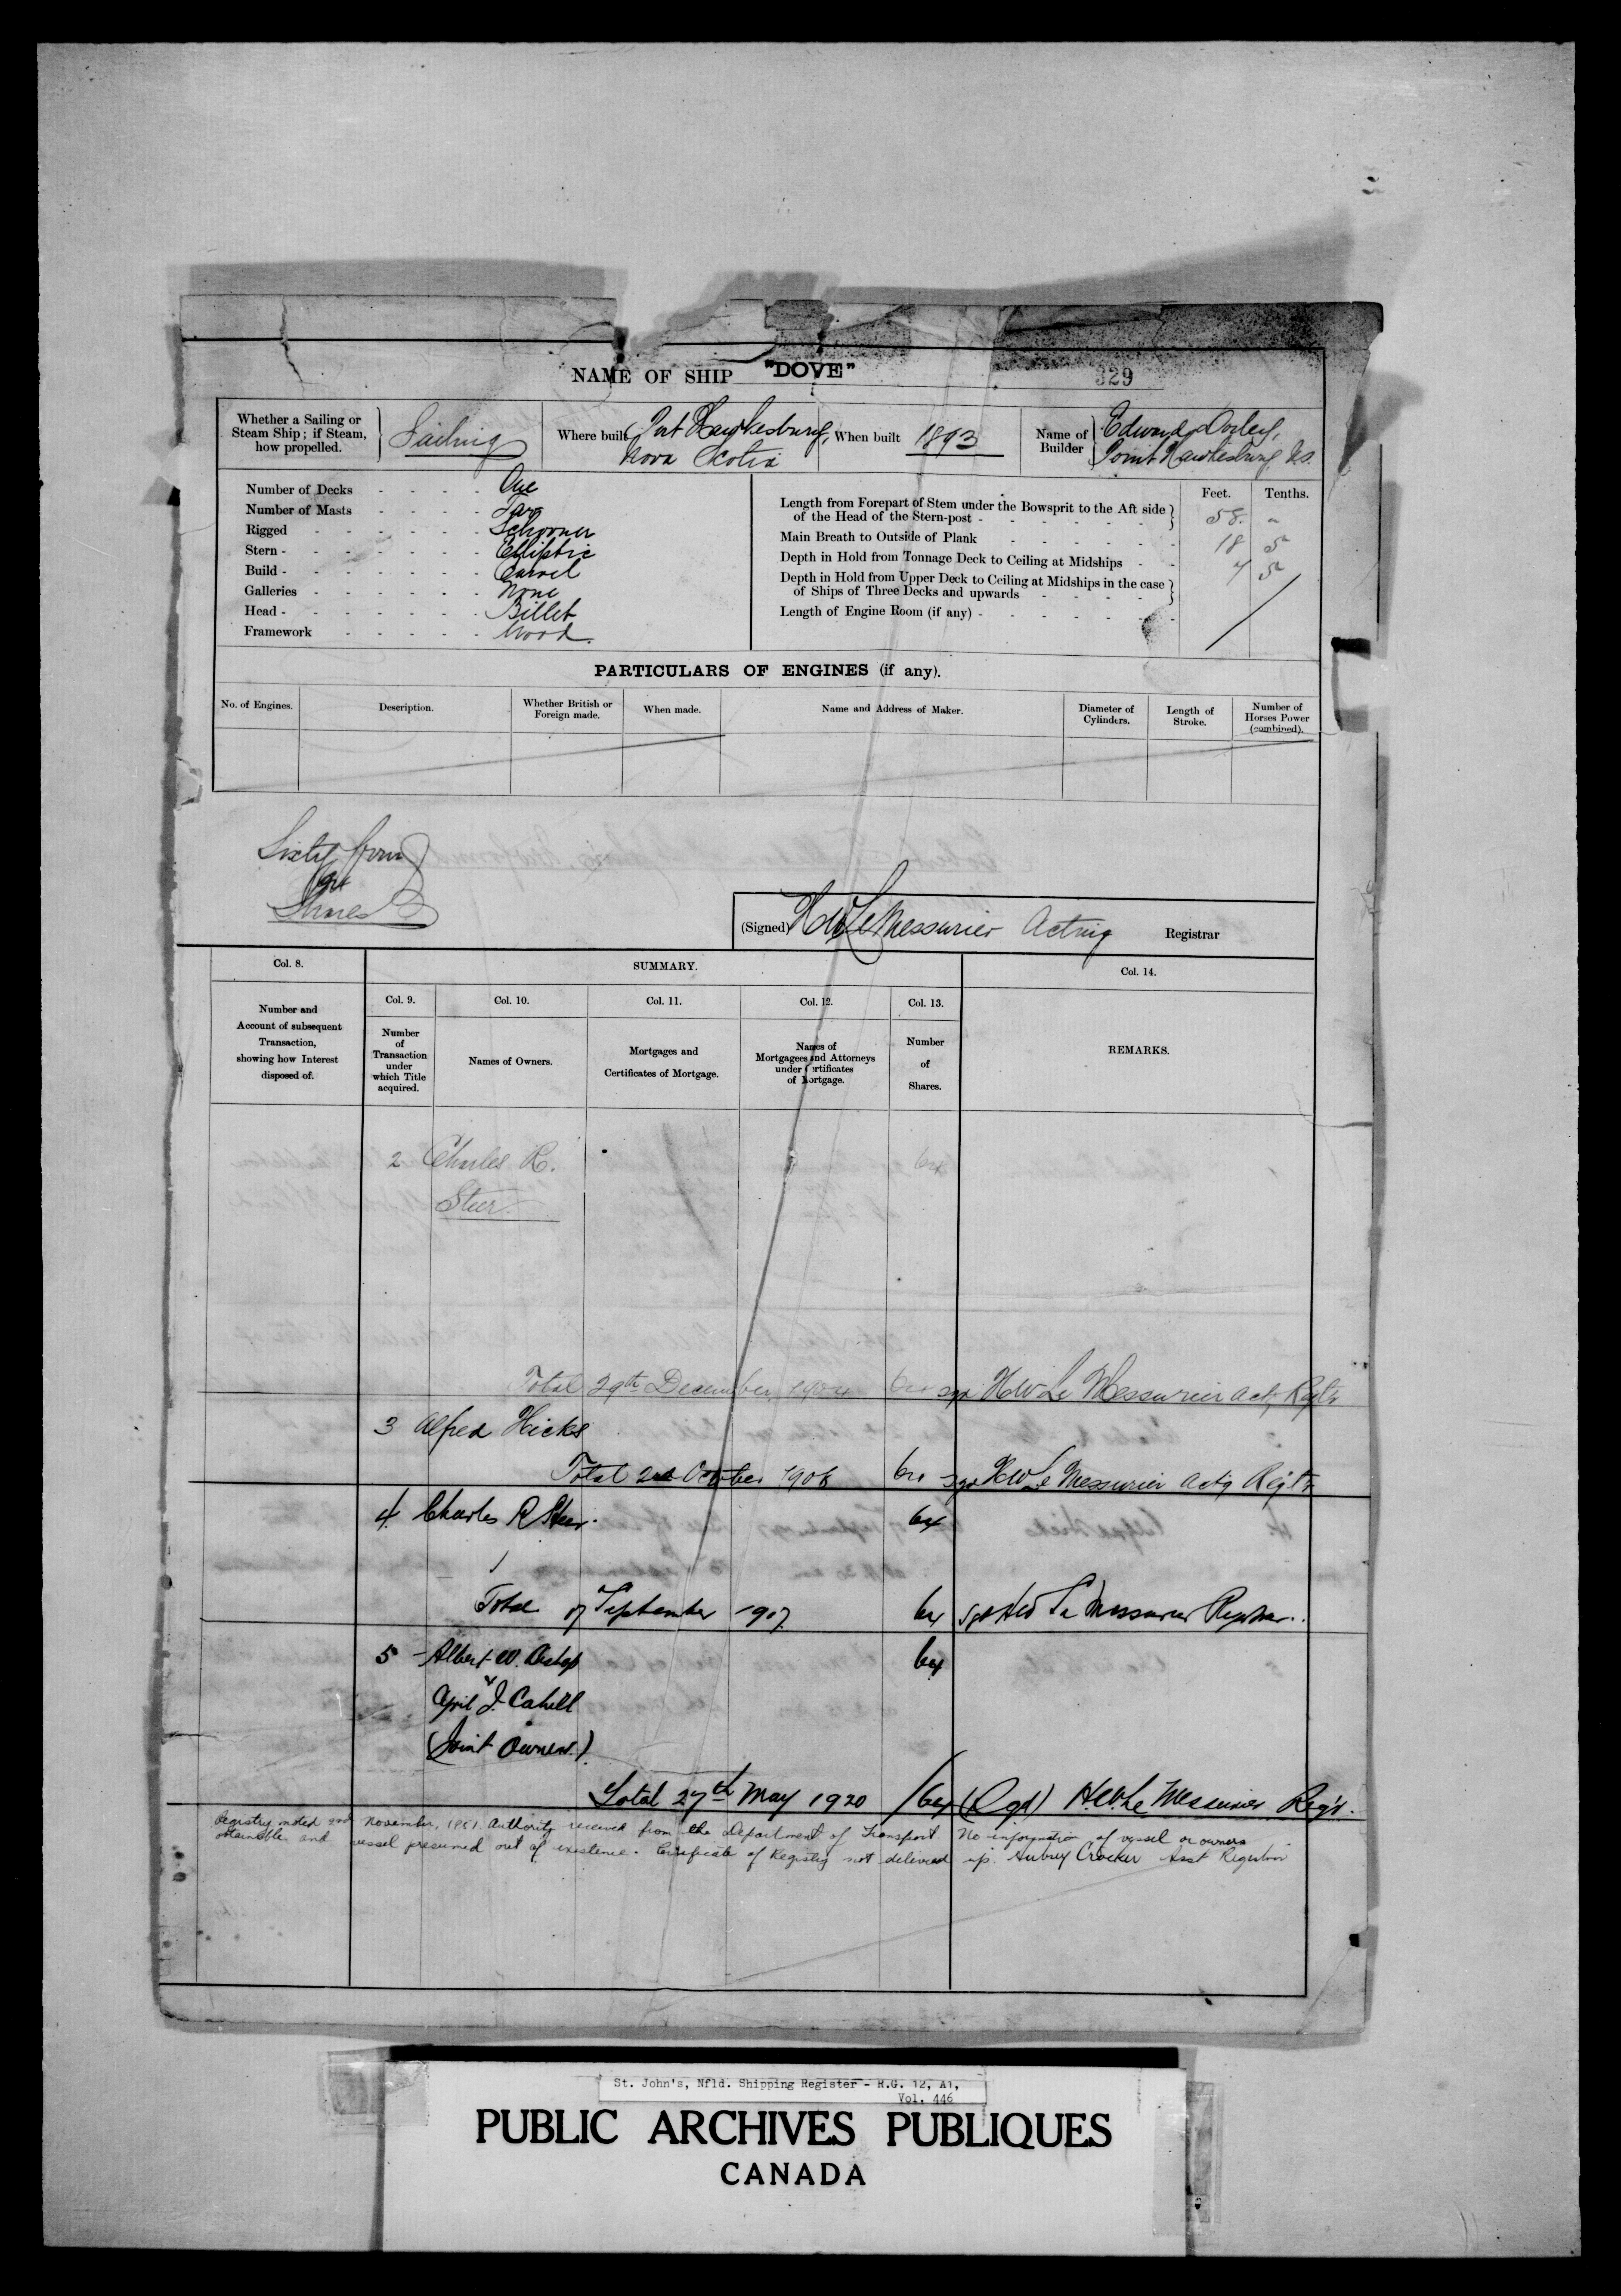 NAME OF SHIP "DOVE"
329
Whether a Sailing or Steam Ship; if Steam, how propelled. Sailing
Where built Port Hawkesbury, Nova Scotia
When built 1893
Name of Builder Edward
Point Hawkesbury N.S.
Number of Decks - - - - One
Number of Masts - - - - Two
Rigged - - - - - - Schooner
Stern - - - - - - - Elliptic
Build - - - - - - - Carvel
Galleries - - - - - - None
Head - - - - - - - Billet
Framework - - - - - Wood.
Feet. Tenths.
Length from Forepart of Stem under the Bowsprit to the Aft side of the Head of the Stern-post - 58. "
Main Breath to Outside of Plank - - - - - - 18 5
Depth in Hold from Tonnage Deck to Ceiling at Midships - - 7 5
Depth in Hold from Upper Deck to Ceiling at Midships in the case of Ships of Three Decks and upwards - - - -
Length of Engine Room (if any) - - - - - - -
PARTICULARS OF ENGINES (if any).
No. of Engines.
Description.
Whether British or Foreign made.
When made.
Name and Address of Maker.
Diameter of Cylinders.
Length of Stroke.
Number of Horses Power (combined).
Sixty four
64
Shares
(Signed) HW LeMessurier Acting Registrar
Col. 8.
SUMMARY.
Col. 14.
Col. 9. Col. 10. Col. 11. Col. 12. Col. 13.
Number and Account of subsequent Transaction, showing how Interest disposed of.
Number of Transaction under which Title acquired.
Names of Owners.
Mortgages and Certificates of Mortgage.
Names of Mortgagees and Attorneys under Certificates of Mortgage.
Number of Shares.
REMARKS.
2 Charles R. 64
Steer
Total 29th December, 1904 64 sgd HW Le Messurier Actg Regtr
3 Alfred Hicks
Total October 1906 64 sgd HW Le Messurier Actg Regtr
4 Charles R Steer. 64
Total 17 September 1907 64 sgd HW Le Messurier Registrar.
5 Albert W. Bishop 64
& April J. Cahill
(Joint Owners)
Total 27th May 1920 64 (Sgd) H.W. Le Messurier Reg'r.
Registry ended 2nd November, 1951. Authority received from the Department of Transport. No information of vessel or owners
obtainable and vessel presumed out of existence. Certificate of Registry not delivered up. Aubrey Crocker Asst Registrar
St. John's, Nfld. Shipping Register - R.G. 12, A1,
Vol. 446
PUBLIC ARCHIVES PUBLIQUES
CANADA